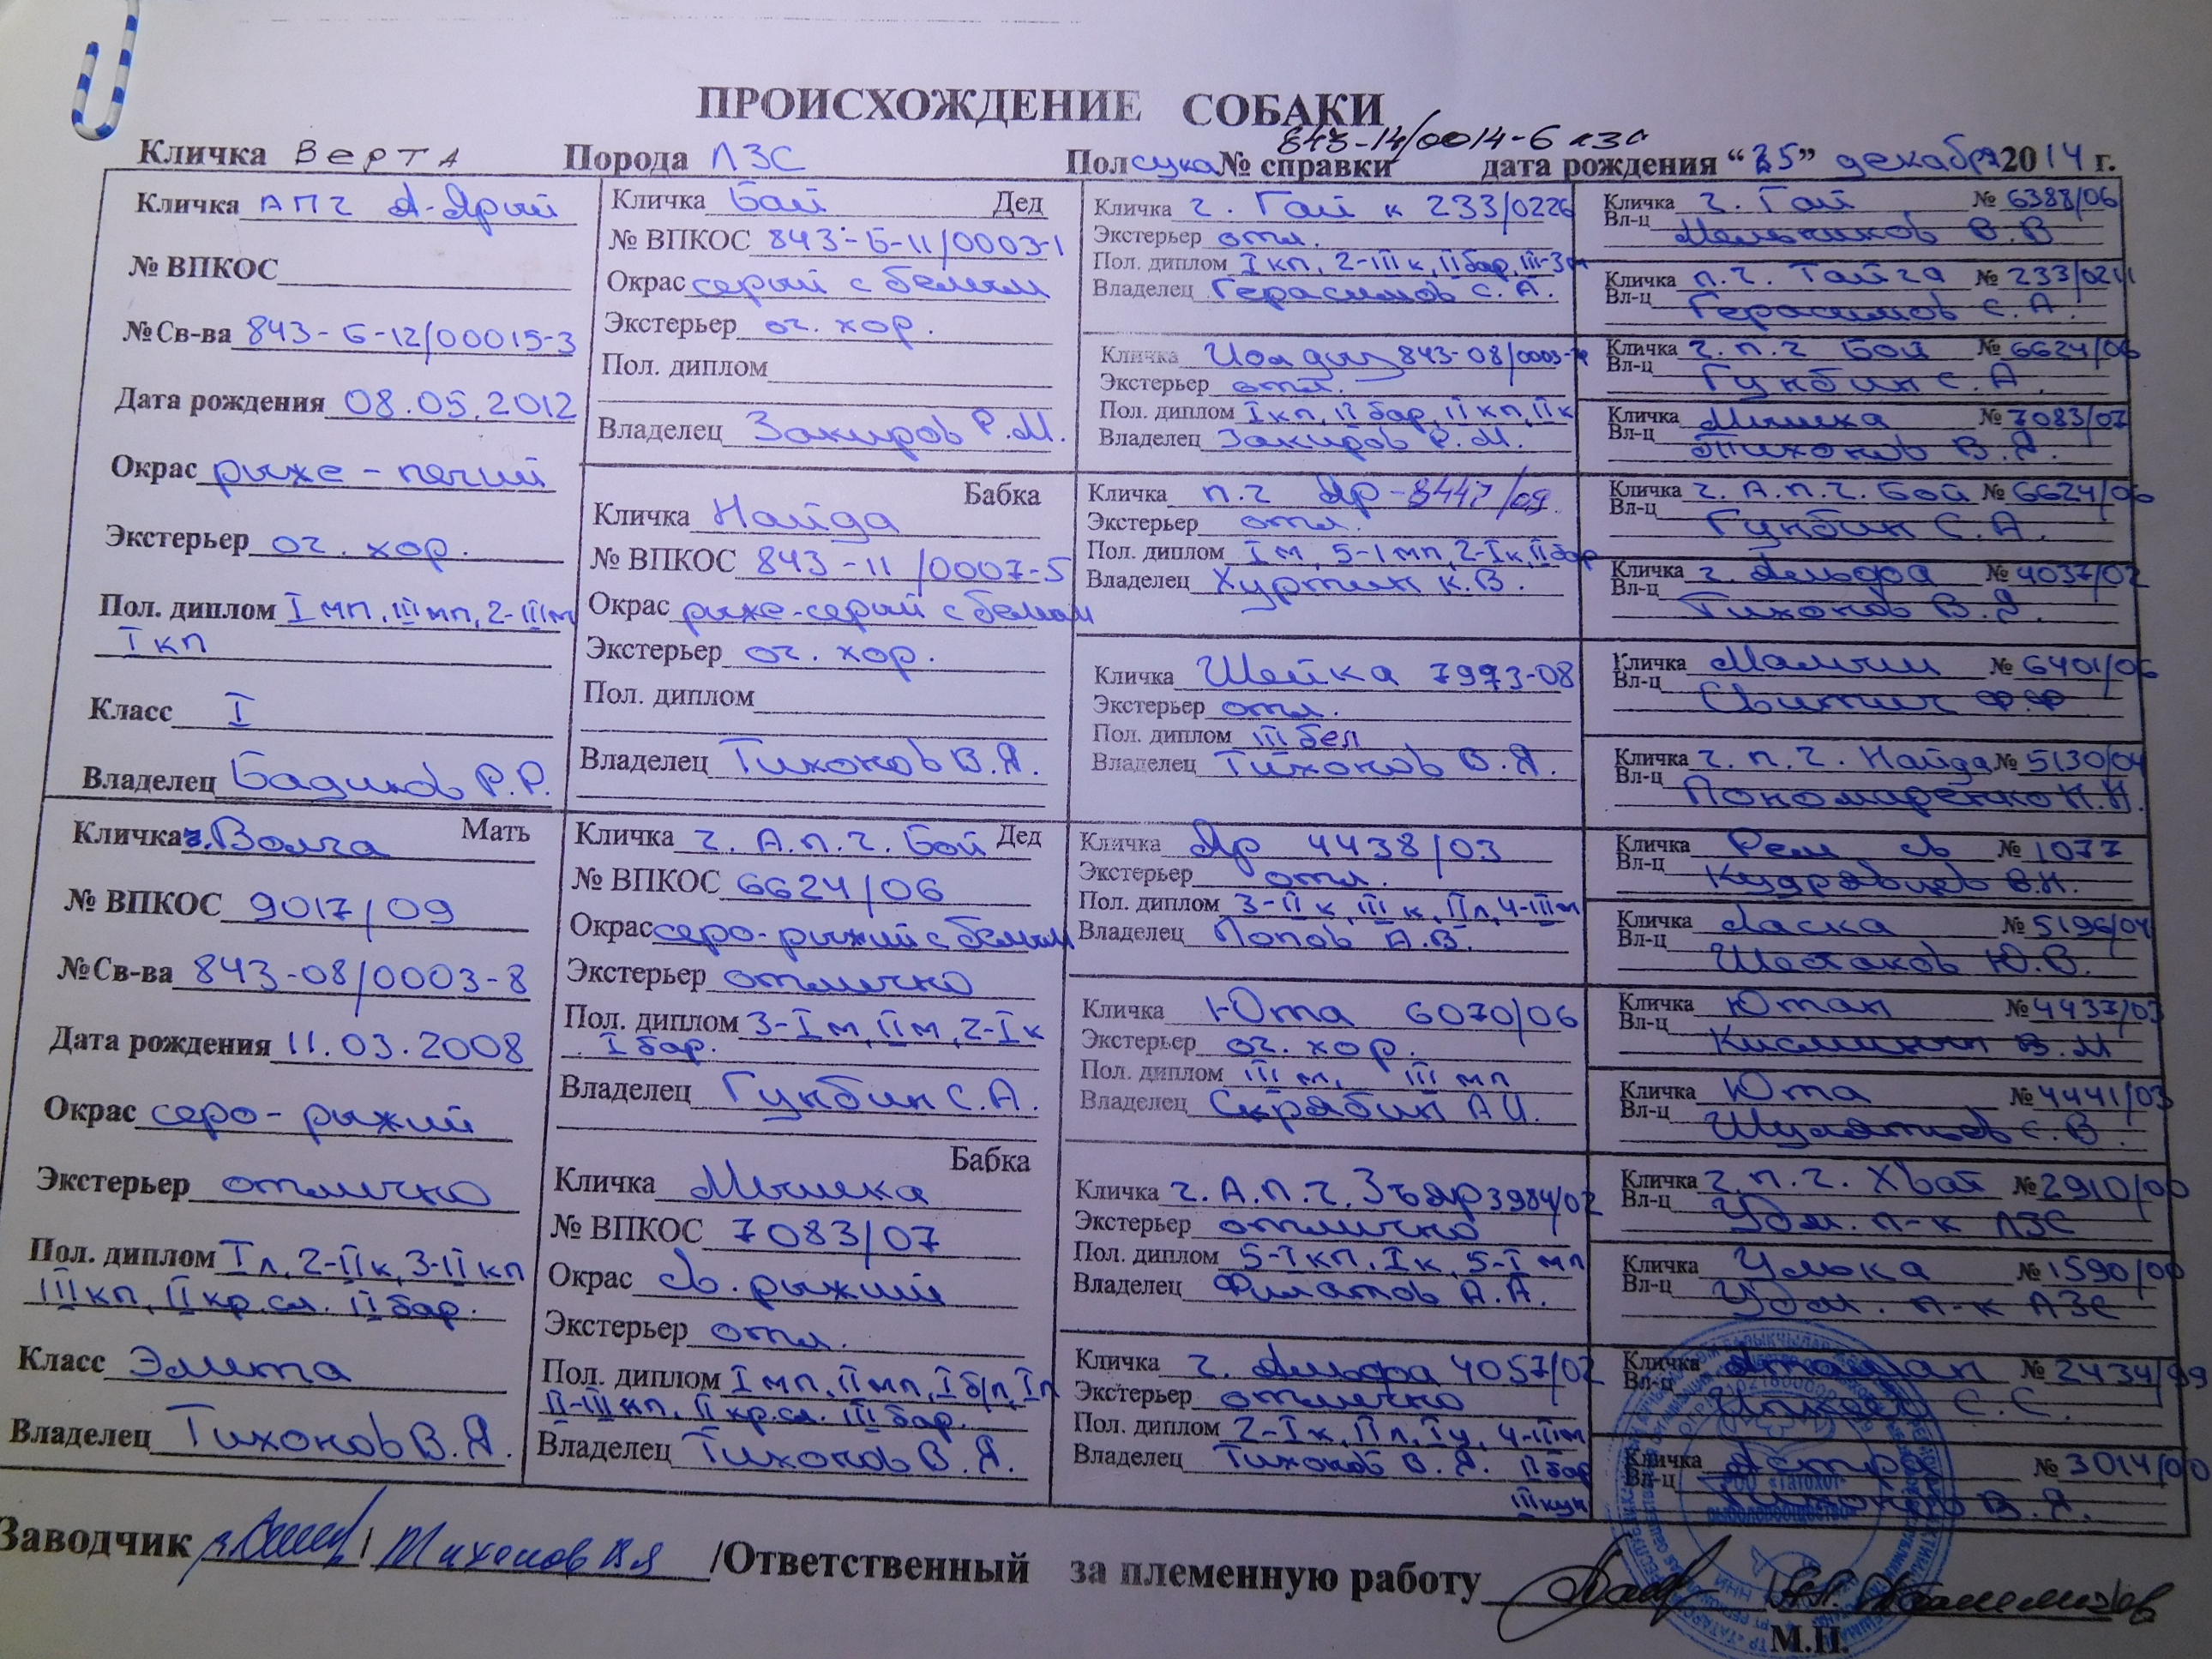 ПРОИСХОЖДЕНИЕ СОБАКИ
843-14/0014-6 ЛЗС
Кличка Верта Порода ЛЗС Пол сука № справки дата рождения "25" декабря 2014 г.
Кличка АПЧ А-Ярый
№ ВПКОС
№Св-ва 843-Б-12/00015-3
Дата рождения 08.05.2012
Окрас рыже-пегий
Экстерьер оч. хор.
Пол. диплом I мп, III мп, 2-III м
I кп
Класс I
Владелец Бадиков Р.Р.
Кличка ч. Волга Мать
№ ВПКОС 9017/09
№Св-ва 843-08/0003-8
Дата рождения 11.03.2008
Окрас серо-рыжий
Экстерьер отлично
Пол. диплом I л, 2-II к, 3-II кп
III кп, II кр.сл. II бар.
Класс Элита
Владелец Тихонов В.Я.
Кличка Бай Дед
№ ВПКОС 843-Б-11/0003-1
Окрас серый с белым
Экстерьер оч. хор.
Пол. диплом
Владелец Закиров Р.М.
Бабка
Кличка Найда
№ ВПКОС 843-11/0007-5
Окрас рыже-серый с белым
Экстерьер оч. хор.
Пол. диплом
Владелец Тихонов В.Я.
Кличка ч. А.п.ч. Бой Дед
№ ВПКОС 6624/06
Окрас серо-рыжий с белым
Экстерьер отлично
Пол. диплом 3-I м, II м, 2-I к
I бар.
Владелец Гункбин С.А.
Бабка
Кличка Мышка
№ ВПКОС 7083/07
Окрас св. рыжий
Экстерьер отл.
Пол. диплом I мп, II мп, I б/п, I л
II-III кп, II кр.сл. III бар.
Владелец Тихонов В.Я.
Кличка ч. Гай к 233/0226
Экстерьер отл.
Пол. диплом I кп, 2-III к, II бар, III-3м
Владелец Герасимов С.А.
Кличка 843-08/0003
Экстерьер отл.
Пол. диплом I кп, II бар, II кп, II к
Владелец Закиров Р.М.
Кличка п.ч Яр-8447/09
Экстерьер отл.
Пол. диплом I м, 5-I мп, 2-I к, II бар
Владелец Хуртин К.В.
Кличка Шейка 7973-08
Экстерьер отл.
Пол. диплом III бел
Владелец Тихонов В.Я.
Кличка Яр 4438/03
Экстерьер отл.
Пол. диплом 3-II к, III к, II л, 4-III м
Владелец Попов А.В.
Кличка Юта 6070/06
Экстерьер оч. хор.
Пол. диплом III м, III мп
Владелец Скрябин А.И.
Кличка ч. А.п.ч. Зъяр 3984/02
Экстерьер отлично
Пол. диплом 5-I кп, I к, 5-I мп
Владелец Филатов А.А.
Кличка ч. Альфа 4057/02
Экстерьер отлично
Пол. диплом 2-I к, II л, I у, 4-III м
Владелец Тихонов В.Я. II бар
III кун
Кличка ч. Гай № 6388/06
Вл-ц Мельников В.В
Кличка п.ч. Тайга № 233/0211
Вл-ц Герасимов С.А.
Кличка ч.п.ч Бой № 6624/06
Вл-ц С.А
Кличка Мышка № 7083/07
Вл-ц Тихонов В.Я.
Кличка ч. А.п.ч. Бой № 6624/06
Вл-ц С.А.
Кличка ч. Альфа № 4037/02
Вл-ц Тихонов В.Я.
Кличка Малыш № 6401/06
Вл-ц Свитич Ф.Ф
Кличка ч.п.ч. Найда № 5130/04
Вл-ц Пономаренко Н.Н.
Кличка Рем № 1077
Вл-ц Кудрявцев В.Н.
Кличка Ласка № 5196/04
Вл-ц Шестаков Ю.В.
Кличка Юган № 4437/03
Вл-ц В.М
Кличка Юта № 4441/03
Вл-ц Шулятьев С.В.
Кличка ч.п.ч. Хват № 2910/00
Вл-ц Удм. п-к ЛЗС
Кличка Улька № 1590/00
Вл-ц Удм. п-к ЛЗС
Кличка Атаман № 2434/99
Вл-ц С.С.
Кличка Астра № 3014/00
Вл-ц Тихонов В.Я.
Заводчик / Тихонов В Я /Ответственный за племенную работу
М.П.